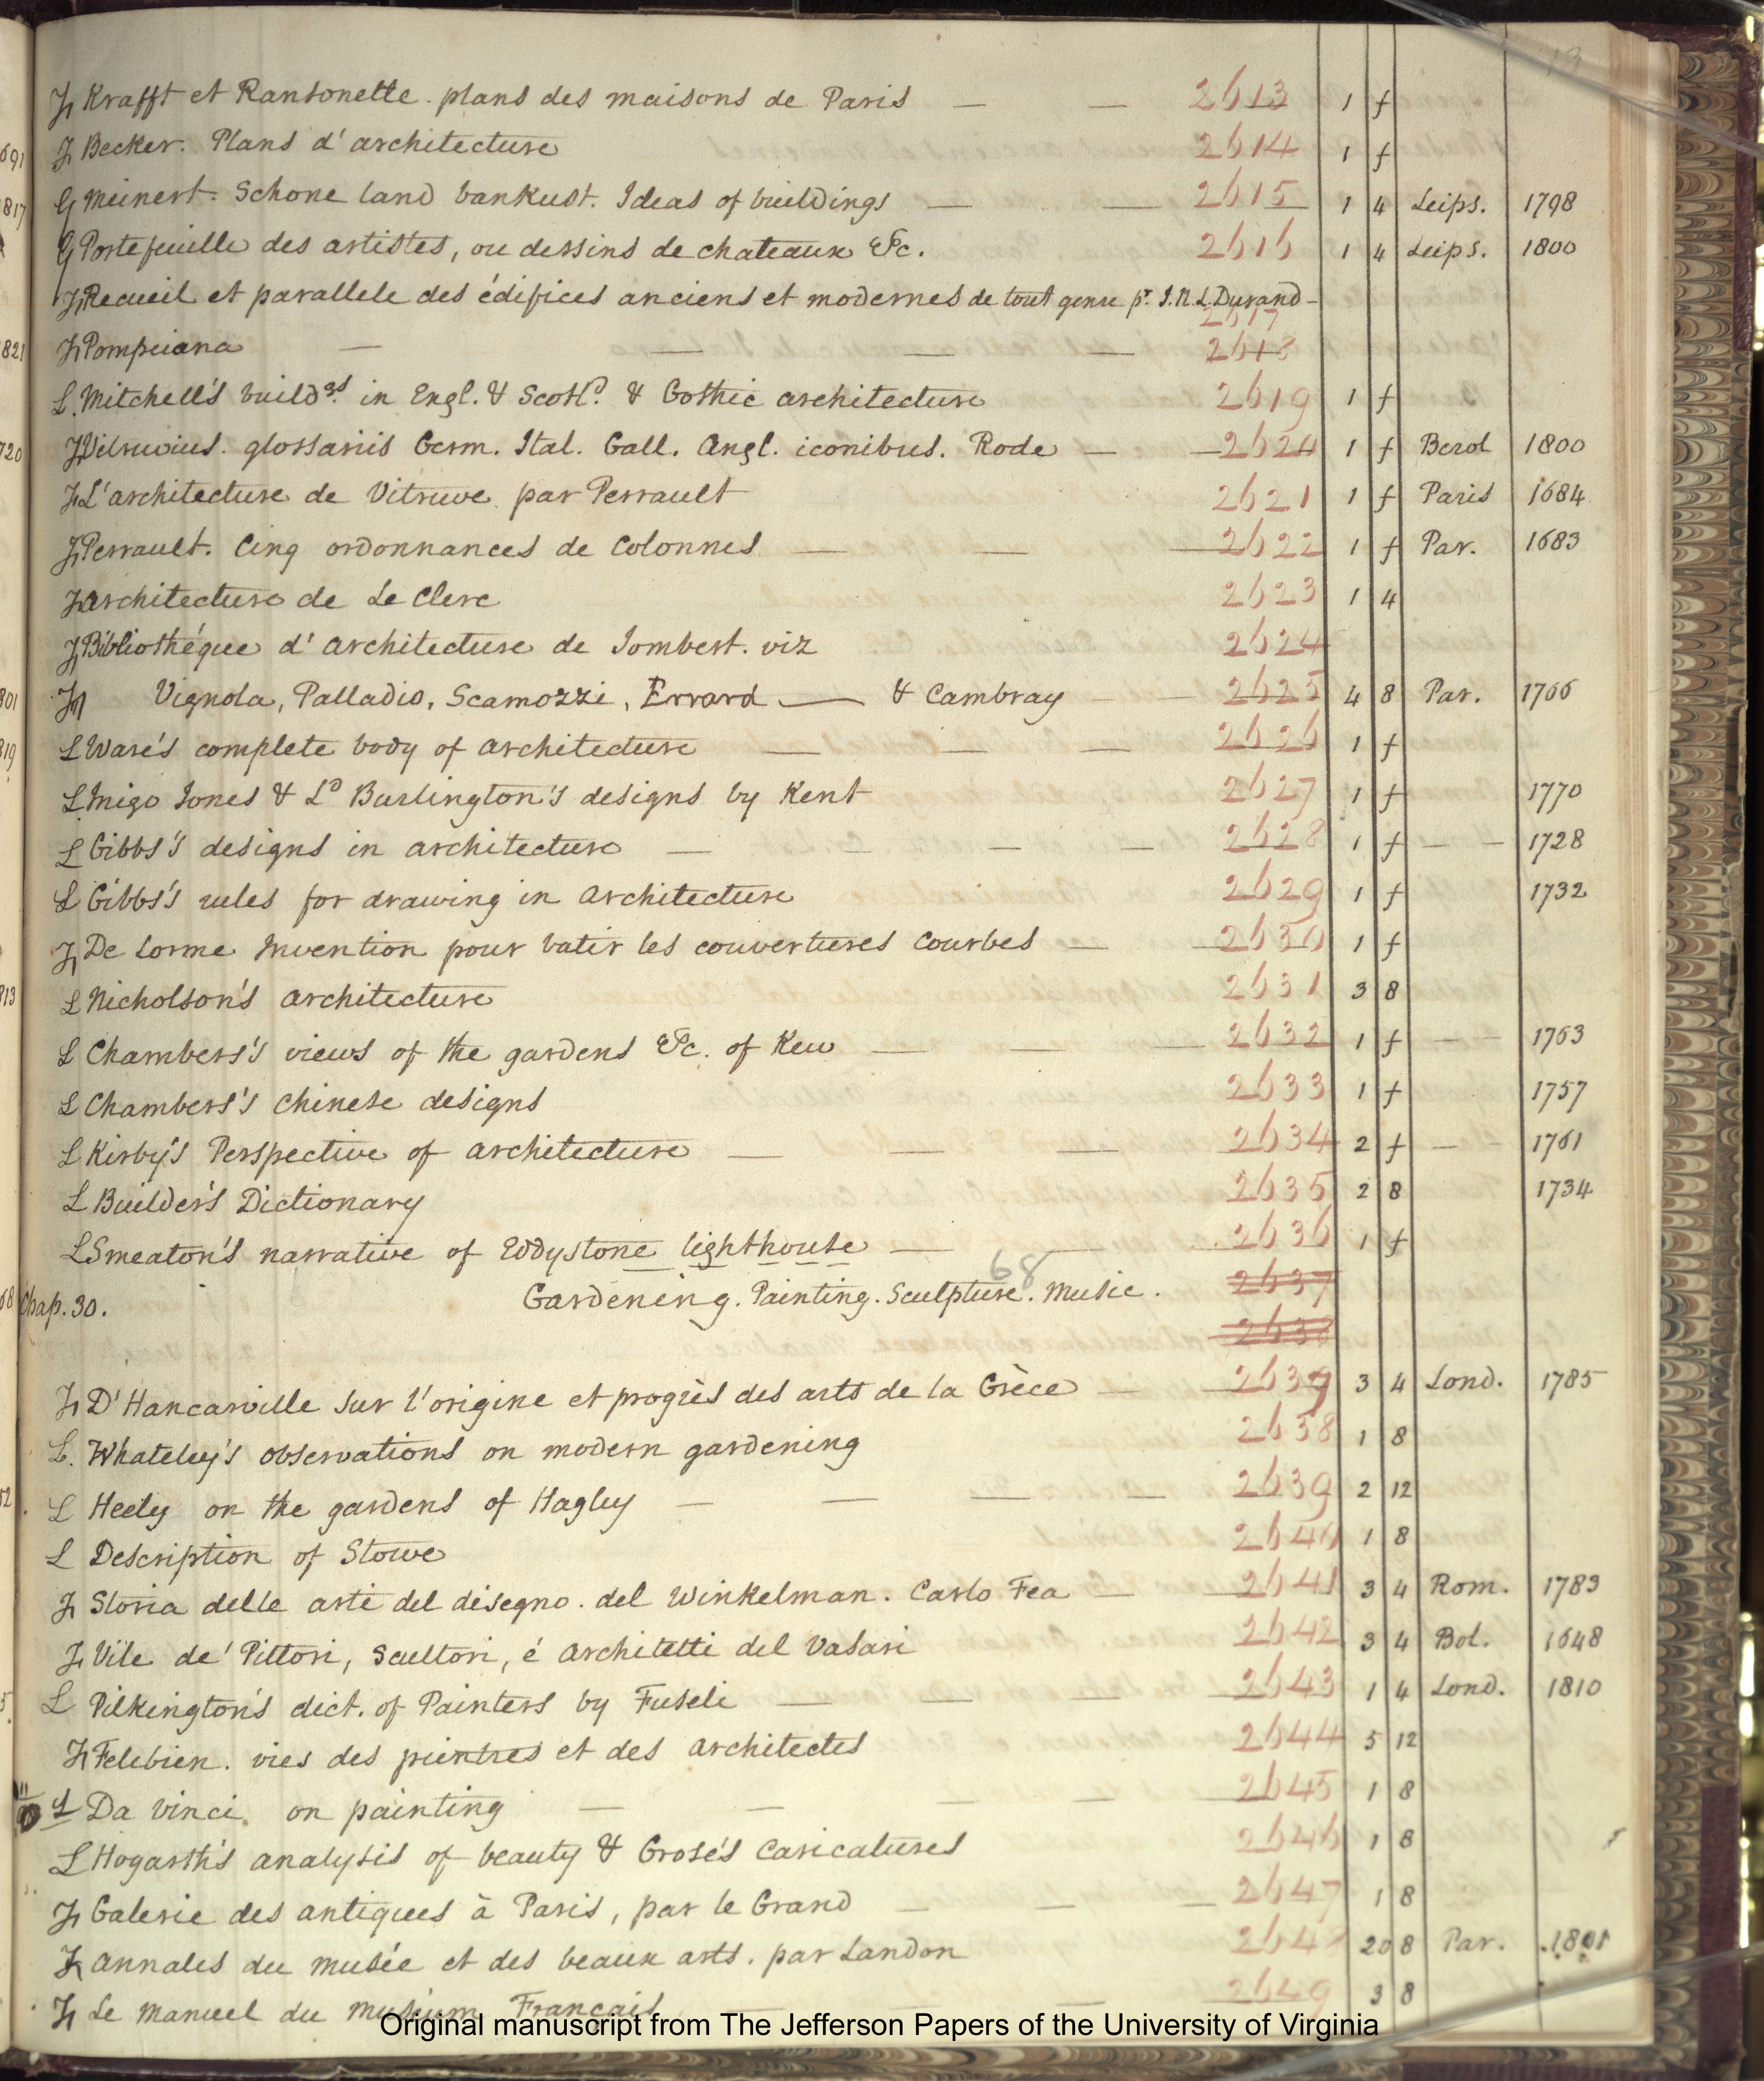 13
Fr Krafft et Ransonette. plans des maisons de Paris — — 2613 1 f
691 Fr Becker. Plans d'architecture 2614 1 f
817 G Meinert. Schone land bankust. Ideas of buildings — — 2615 1 4 Leips. 1798
G Portefeuille des artistes, ou dessins de chateaux &c. 2616 1 4 Leips. 1800
Fr Recueil et parallele des édifices anciens et modernes de tout genre pr. J.N.L. Durand — 2617
821 Fr Pompeiana — — — — 2618
L. Mitchell's buildgs. in Engl. & Scotld. & Gothic architecture 2619 1 f
720 Fr Vitruvius. glossariis Germ. Ital. Gall. Angl. iconibus. Rode — — 2624 1 f Berol 1800
Fr L'architecture de Vitruve par Perrault 2621 1 f Paris 1684
Fr Perrault. Cinq ordonnances de Colonnes — — — 2622 1 f Par. 1683
Fr Architecture de Le Clerc 2623 1 4
Fr Bibliothéque d'Architecture de Jombert. viz 2624
801 Fr Vignola, Palladio, Scamozzi, Errard — & Cambray — — 2625 4 8 Par. 1766
819 L Ware's complete body of architecture — — — 2626 1 f
L Inigo Jones & Ld Burlington's designs by Kent 2627 1 f 1770
L Gibbs's designs in architecture — — — — 2628 1 f — — 1728
L Gibbs's rules for drawing in Architecture 2629 1 f 1732
Fr De Lorme Invention pour batir les couvertures courbes — — 2630 1 f
813 L Nicholson's architecture 2631 3 8
L Chambers's views of the gardens &c. of Kew — — — 2632 1 f — — 1763
L Chambers's Chinese designs 2633 1 f 1757
L Kirby's Perspective of architecture — — — 2634 2 f — — 1761
L Builder's Dictionary 2635 2 8 1734
L Smeaton's narrative of Eddystone lighthouse — — 2636 1 f
68
68 Chap. 30. Gardening. Painting. Sculpture. Music. 2637
2638
Fr D'Hancarville sur l'origine et progrès des arts de la Grèce — — 2637 3 4 Lond. 1785
L. Whateley's observations on modern gardening 2638 1 8
52 L Heely on the gardens of Hagley — — — — 2639 2 12
L Description of Stowe 2640 1 8
Fr Storia delle arti del disegno. del Winkelman. Carlo Fea — — 2641 3 4 Rom. 1783
Fr Vite de' Pittori, Scultori, é Architetti del Vasari 2642 3 4 Bol. 1648
5 L Pilkington's dict. of Painters by Fuseli — — — — 2643 1 4 Lond. 1810
Fr Felebien. vies des peintres et des Architectes 2644 5 12
L Da Vinci. on painting — — — — 2645 1 8
L Hogarth's analysis of beauty & Grose's Caricatures 2646 1 8
Fr Galerie des antiques à Paris, par le Grand — — — 2647 1 8
Fr Annales du musée et des beaux arts. par Landon 2648 20 8 Par. 1801
Fr Le Manuel du Museum Français — — 2649 3 8
Original manuscript from The Jefferson Papers of the University of Virginia